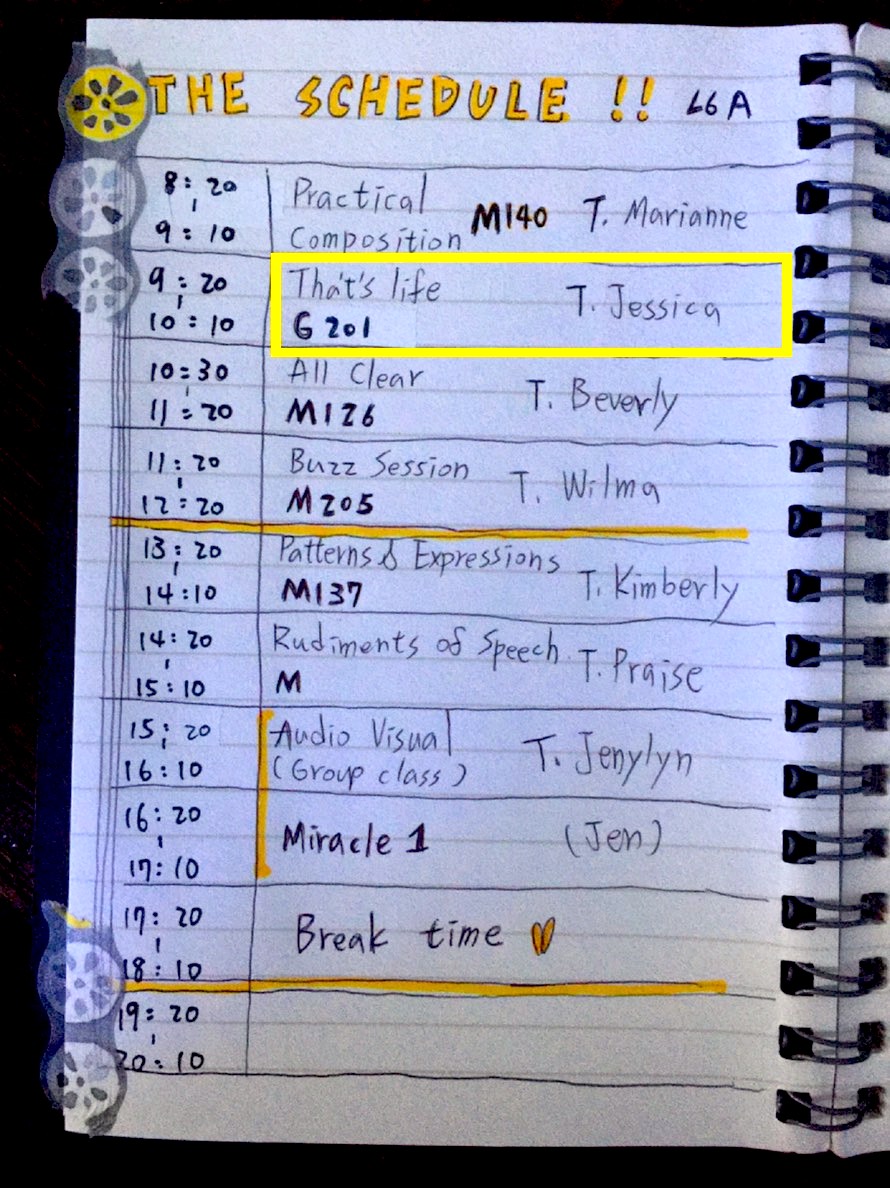 THE SCHEDULE !! L6A
8:20
Practical
M140 T. Marianne
9:10
Composition
9:20
That's life
T. Jessica
10:10
G201
10:30
All Clear
T. Beverly
11:20
M126
11:20
Buzz Session
T. Wilma
12:20
M205
13:20
Patterns & Expressions
T. Kimberly
14:10
M137
14:20
Rudiments of Speech
T. Praise
15:10
M
15:20
Audio Visual
T. Jenylyn
16:10
(Group class)
16:20
Miracle 1 (Jen)
17:10
17:20
Break time
18:10
19:20
20:10